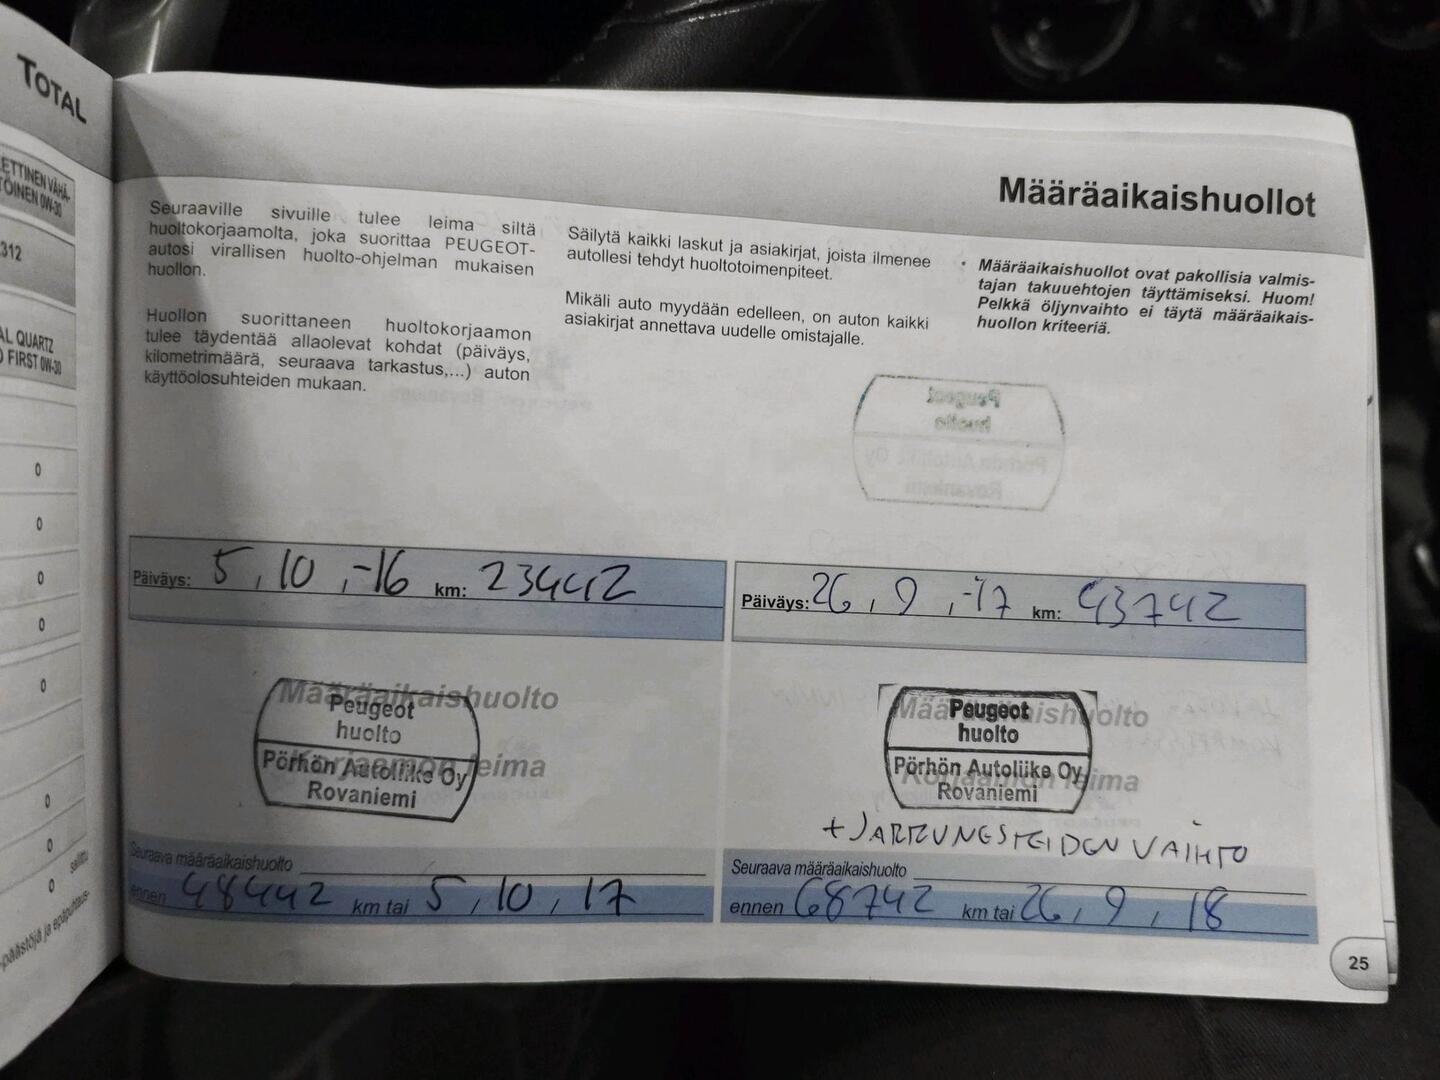 TOTAL
312
0
0
0
0
0
0
0
0
Määräaikaishuollot
Seuraaville sivuille tulee leima siltä
huoltokorjaamolta, joka suorittaa PEUGEOT-
autosi virallisen huolto-ohjelman mukaisen
huollon.
Huollon suorittaneen huoltokorjaamon
tulee täydentää allaolevat kohdat (päiväys,
kilometrimäärä, seuraava tarkastus,...) auton
käyttöolosuhteiden mukaan.
Säilytä kaikki laskut ja asiakirjat, joista ilmenee
autollesi tehdyt huoltotoimenpiteet.
Mikäli auto myydään edelleen, on auton kaikki
asiakirjat annettava uudelle omistajalle.
• Määräaikaishuollot ovat pakollisia valmis-
tajan takuuehtojen täyttämiseksi. Huom!
Pelkkä öljynvaihto ei täytä määräaikais-
huollon kriteeriä.
Päiväys: 5, 10, -16 km: 23442
Määräaikaishuolto
Peugeot
huolto
Korjaamon leima
Pörhön Autoliike Oy
Rovaniemi
Seuraava määräaikaishuolto
ennen 48442 km tai 5, 10, 17
Päiväys: 26, 9, -17 km: 43742
Määräaikaishuolto
Peugeot
huolto
Korjaamon leima
Pörhön Autoliike Oy
Rovaniemi
+ JARRUNESTEIDEN VAIHTO
Seuraava määräaikaishuolto
ennen 68742 km tai 26, 9, 18
25